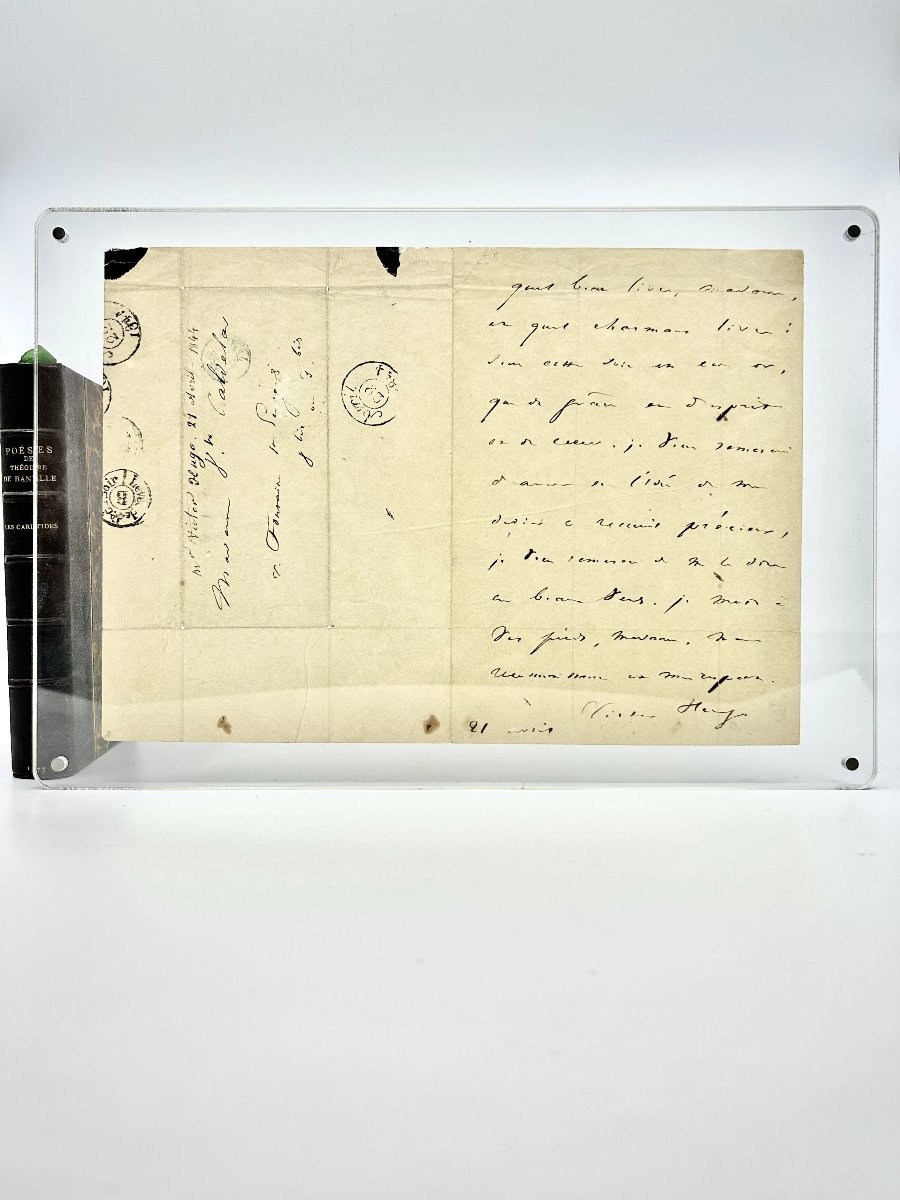 POÉSIES
DE
THÉODORE
DE BANVILLE
LES CARIATIDES
Mr Victor Hugo. 21 Avril 1844
Madame
r. Fontaine St Georges
8 bis
quel beau livre, madame,
et quel charmant livre !
Sous cette soie et cet or,
que de grâce et d'esprit
et de cœur. je vous remercie
d'avoir eu l'idée de me
ce recueil précieux,
je vous remercie de
beaux vers. je mets à
vos pieds, madame,
et mon respect.
Victor Hugo
21 avril